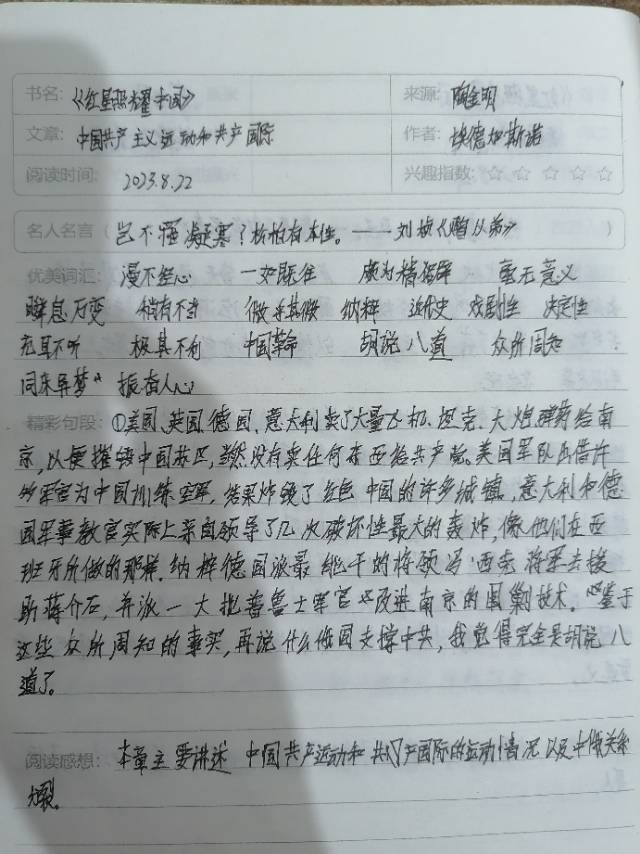 书名: 《红星照耀中国》 来源: 陶金明
文章: 中国共产主义运动和共产国际 作者: 埃德加斯诺
阅读时间: 2023.8.22 兴趣指数: ☆ ☆ ☆ ☆ ☆
名人名言 ( 岂不罹凝寒?松柏有本性。——刘桢《赠从弟》 )
优美词汇: 漫不经心 一如既往 毫无意义
瞬息万变 稍有不当 纳粹 近代史 戏剧性 决定性
充耳不听 极其不利 中国革命 胡说八道 众所周知
同床异梦 振奋人心
精彩句段: ①美国、英国、德国、意大利卖了大量飞机、坦克、大炮、弹药给南
京,以便摧毁中国苏区,当然没有卖任何东西给共产党。美国军队出借许
多军官为中国训练空军,结果炸毁了红色中国的许多城镇,意大利和德
国军事教官实际上亲自领导了几次破坏性最大的轰炸,像他们在西
班牙所做的那样。纳粹德国派最能干的将领冯·西克将军去援
助蒋介石,并派一大批普鲁士军官改进南京的围剿技术。鉴于
这些众所周知的事实,再说什么俄国支撑中共,我觉得完全是胡说八
道了。
阅读感想: 本章主要讲述 中国共产运动和共产国际的运动情况以及中俄关系
裂。